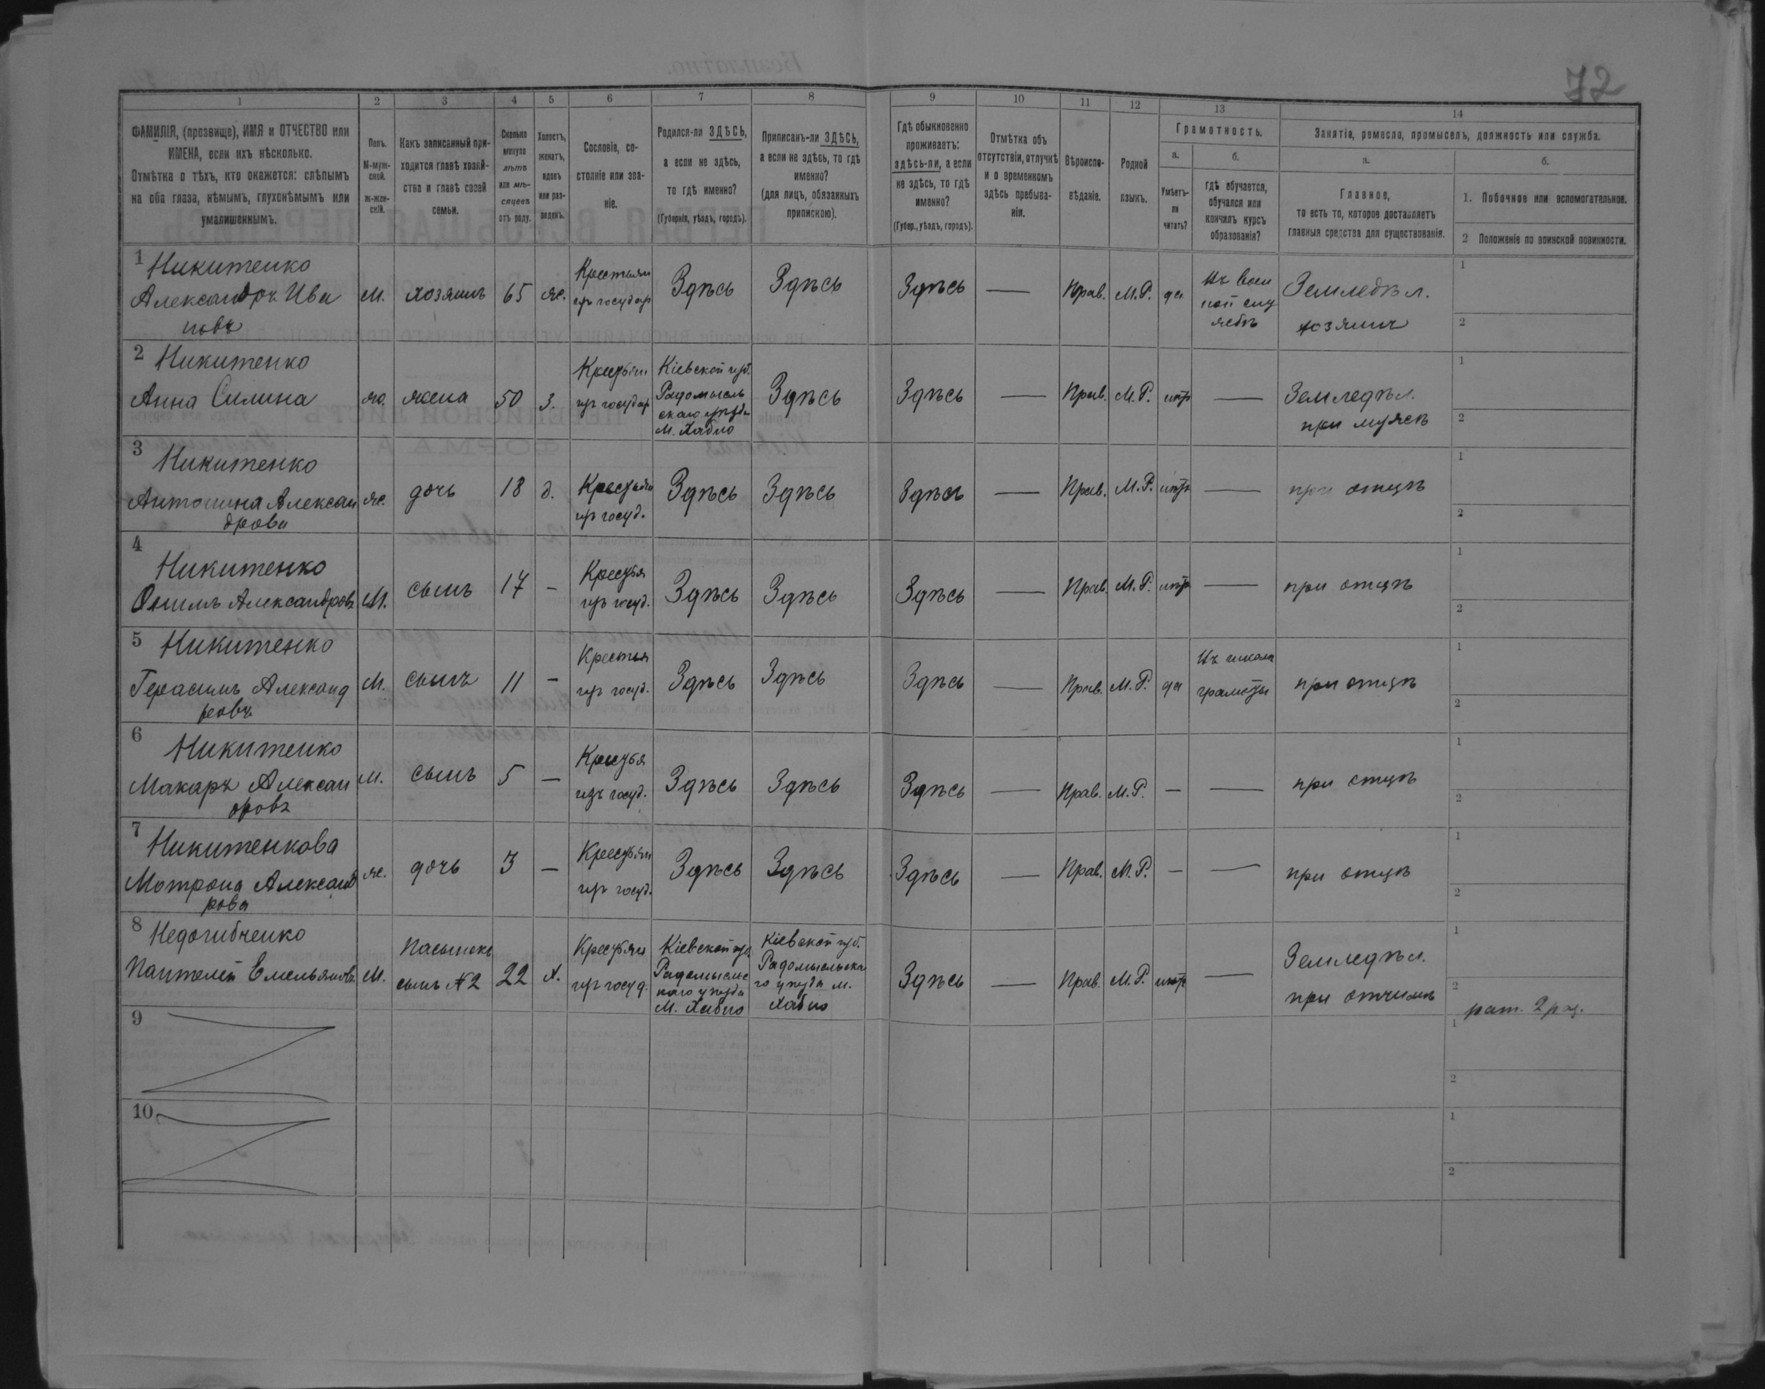 72
1 2 3 4 5 6 7 8 9 10 11 12 13 14
ФАМИЛІЯ, (прозвище), ИМЯ и ОТЧЕСТВО или
ИМЕНА, если ихъ нѣсколько.
Отмѣтка о тѣхъ, кто окажется: слѣпымъ
на оба глаза, нѣмымъ, глухонѣмымъ или
умалишеннымъ.
Полъ.
М-муж-
ской.
Ж-жен-
скій.
Какъ записанный при-
ходится главѣ хозяй-
ства и главѣ своей
семьи.
Сколько
минуло
лѣтъ
или мѣ-
сяцевъ
отъ роду.
Холостъ,
женатъ,
вдовъ
или раз-
веденъ.
Сословіе, со-
стояніе или зва-
ніе.
Родился-ли ЗДѢСЬ,
а если не здѣсь,
то гдѣ именно?
(Губернія, уѣздъ, городъ).
Приписанъ-ли ЗДѢСЬ,
а если не здѣсь, то гдѣ
именно?
(для лицъ, обязанныхъ
припискою).
Гдѣ обыкновенно
проживаетъ:
здѣсь-ли, а если
не здѣсь, то гдѣ
именно?
(Губер., уѣздъ, городъ).
Отмѣтка объ
отсутствіи, отлучкѣ
и о временномъ
здѣсь пребыва-
ніи.
Вѣроиспо-
вѣданіе.
Родной
языкъ.
Грамотность.
а.
Умѣетъ-
ли
читать?
б.
гдѣ обучается,
обучался или
кончилъ курсъ
образованія?
Занятіе, ремесло, промыселъ, должность или служба.
а.
Главное,
то есть то, которое доставляетъ
главныя средства для существованія.
б.
1. Побочное или вспомогательное.
2 Положеніе по воинской повинности.
1 Никитенко
Александръ Ива
новъ
М. хозяинъ 65 ж.
Крестьян
изъ государ
Здѣсь Здѣсь Здѣсь — Прав. М.Р. да
Въ воен
ной слу
жбѣ
Земледѣл.
хозяинъ
1
2
2 Никитенко
Анна Силина
ж. жена 50 з.
Крестьян
изъ государ
Кіевской губ.
Радомысль
скаго уѣзда
М. Хабно
Здѣсь Здѣсь — Прав. М.Р. нѣтъ —
Земледѣл.
при мужѣ
1
2
3 Никитенко
Антонина Алексан
дрова
ж. дочь 18 д.
Крестьян
изъ госуд.
Здѣсь Здѣсь Здѣсь — Прав. М.Р. нѣтъ — при отцѣ
1
2
4
Никитенко
Александровъ
М. сынъ 17 –
Крестья
изъ госуд.
Здѣсь Здѣсь Здѣсь — Прав. М.Р. нѣтъ — при отцѣ
1
2
5 Никитенко
Герасимъ Александ
ровъ
М. сынъ 11 –
Крестья
изъ госуд.
Здѣсь Здѣсь Здѣсь — Прав. М.Р. да
Въ школа
грамоты
при отцѣ
1
2
6
Никитенко
Макаръ Алексан
дровъ
М. сынъ 5 —
Крестья
изъ госуд.
Здѣсь Здѣсь Здѣсь — Прав. М.Р. — — при отцѣ
1
2
7
Никитенкова
Мотрона Александ
рова
ж. дочь 3 —
Крестьян
изъ госуд.
Здѣсь Здѣсь Здѣсь — Прав. М.Р. — — при отцѣ
1
2
8 Недогибченко
Пантелей Емельяновъ
М.
Пасынокъ
сынъ №2
22 х.
Крестьян
изъ госуд.
Кіевской губ
Радомысльс
каго уѣзда
М. Хабно
Кіевской губ.
Радомысльска
го уѣзда м.
Хабно
Здѣсь — Прав. М.Р. нѣтъ —
Земледѣл.
при отчимѣ
1
2
рат. 2 раз.
9
1
2
10
1
2